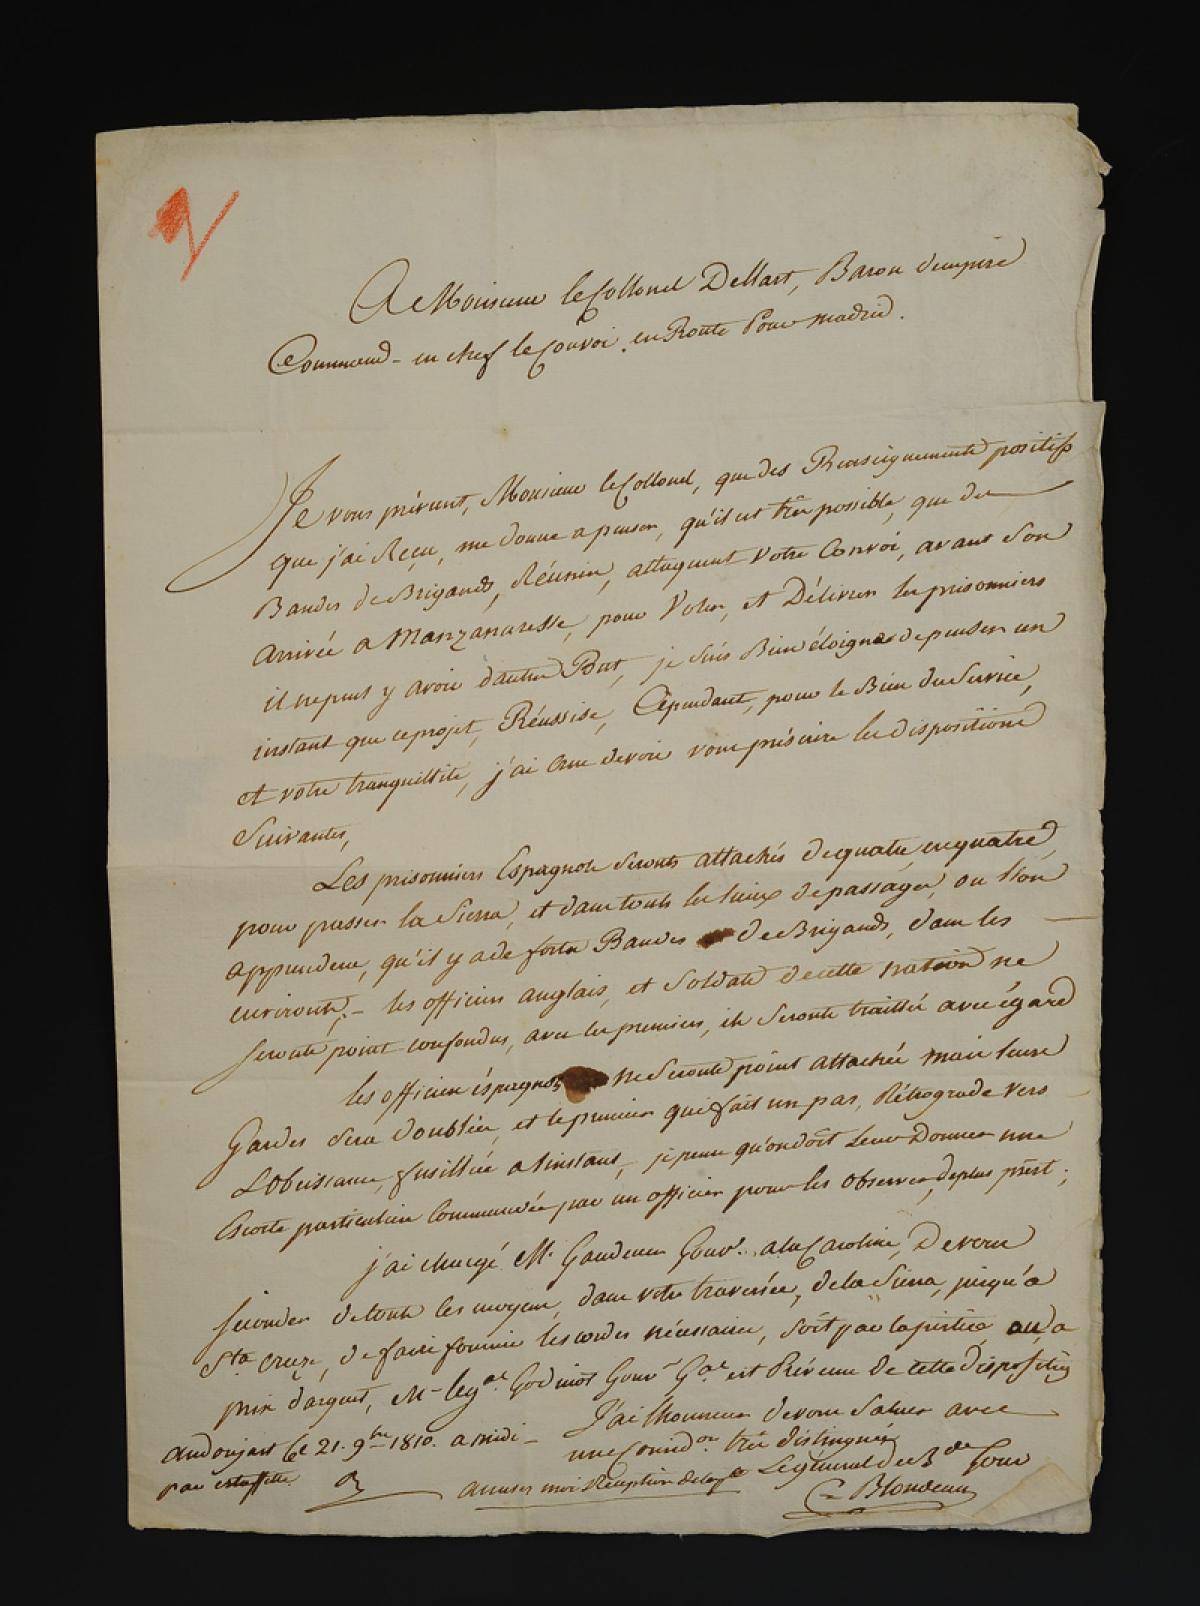 A Monsieur le Collonel Dellart, Baron d'empire
Command- en chef le Convoi en Route Pour Madrid.
Je vous prévient, Monsieur le Collonel, que des Renseignements positifs
que j'ai Reçu, me donne a penser, qu'il est très possible, que des
Bandes de Brigands, Réunies, attaquent Votre Convoi, avant son
arrivée a Manzanaresse, pour Voler, et Délivrer les prisonniers
il ne peut y avoir d'autre But, je suis Bien éloigné de penser un
instant que ce projet, Réussise, Cependant, pour le Bien du Service,
et votre tranquillité, j'ai Crue devoir vous préscrire les dispositions
Suivantes,
Les prisonniers Espagnols Seronts attachés de quatre, en quatre,
pour passer la Sierra, et dans touts les lieux de passages, ou l'on
apprendera, qu'il y a de fortes Bandes de Brigands, dans les
environts, - les officiers anglais, et Soldats de cette nation ne
Seronts point confondus, avec les premiers, ils Seronts traittés avec égard
les officiers éspagnols ne Seronts point attachés mais leurs
Gardes Sera doublée, et le premier qui fait un pas, Rétrograde vers
L'obeissance, fusillée a l'instant, je pense qu'on doit Leur Donner une
Escorte particulière Commandée par un officier pour les observer, de plus prést;
j'ai chargé Mr Gaudener Gouvr. a la Caroline, De vous
Séconder de touts les moyens, dans votre traversée, de la Sierra, jusqu'a
Sta Cruze, de faire fournir les cordes nécessaires, soit par la justice, ou a
prix d'argent, Mr le Gal Godinot Gouvr Gal est Prévenu de cette disposition
andoujart le 21. 9bre 1810. a midi - J'ai l'honneur de vous Saluer avec
par estaffette une Considon très distinguée
accuser moi Réception de la pte Le général de Bde Gouv
Blondeau